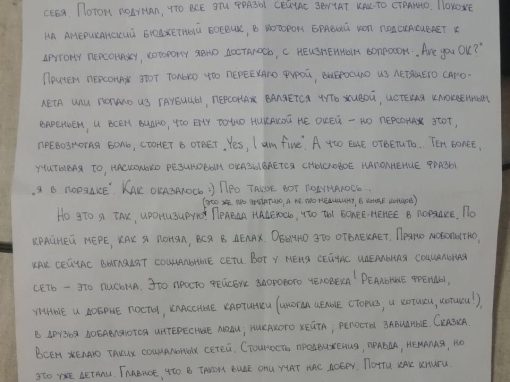 себя. Потом подумал, что все эти фразы сейчас звучат как-то странно. Похоже
на американский бюджетный боевик, в котором бравый коп подскакивает к
другому персонажу, которому явно досталось, с неизменным вопросом „Are you OK?"
Причем персонаж этот только что переехало фурой, выбросило из летящего само-
лета или попало из гаубицы, персонаж валяется чуть живой, истекая клюквенным
вареньем, и всем видно, что ему точно никакой не окей – но персонаж этот,
превозмогая боль, стонет в ответ „Yes, I am fine" А что еще ответить... Тем более,
учитывая то, насколько резиновым оказывается смысловое наполнение фразы
„я в порядке". Как оказалось :) Про такое вот подумалось...
(это же про эмпатию, а не про медицину, в конце концов)
Но это я так, иронизирую. Правда надеюсь, что ты более-менее в порядке. По
крайней мере, как я понял, вся в делах. Обычно это отвлекает. Прямо любопытно,
как сейчас выглядят социальные сети. Вот у меня сейчас идеальная социальная
сеть – это письма. Это просто фейсбук здорового человека! Реальные френды,
умные и добрые посты, классные картинки (иногда целые сториз, и котики, котики!),
в друзья добавляются интересные люди, никакого хейта, репосты завидные. Сказка.
Всем желаю таких социальных сетей. Стоимость продвижения, правда, немалая, но
это уже детали. Главное, что в таком виде они учат нас добру. Почти как книги.